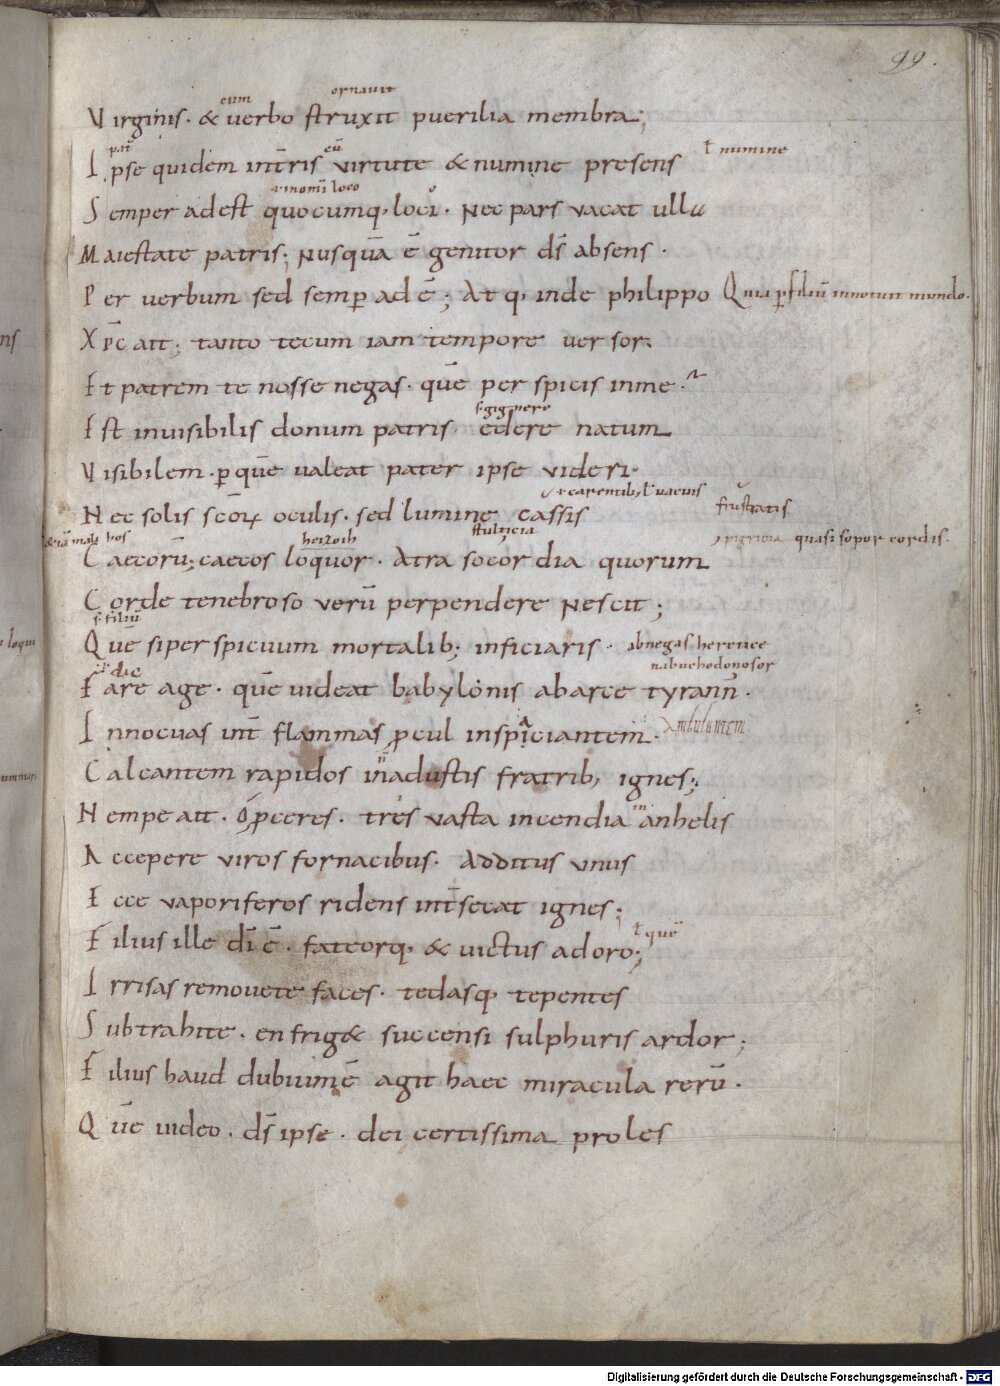 99.
cum ornauit
Virginis. & uerbo struxit puerilia membra;
pat̄ cū
Ipse quidem int̄ris virtute & numine presens ƚ numine
Semper adest quocumq, loci. Nec pars vacat ulla
Maiestate patris; Nusquā ē genitor ds̄ absens.
Per uerbum sed semꝑ adē; Atq, inde philippo Quia ꝑ filiū innotuit mundo.
Xp̄c ait; tanto tecum iam tempore versor.
Et patrem te nosse negas. quē perspicis inme.
s. gignere
Est inuisibilis donum patris edere natum
Visibilem. ꝑquē ualeat pater ipse videri.
carentib, ƚ vacuis
Nec solis scōꝝ oculis. sed lumine cassis frustratis
heizoih stulticia pigricia quasi sopor cordis.
Caecorū; caecos loquor. Atra socordia quorum
Corde tenebroso verū perpendere Nescit;
s. filiū
Quē siperspicuum mortalib; inficiaris. abnegas herence
dic nabuchodonosor
Fare age. quē uideat babylonis abarce tyrann̄.
Innocuas int̄ flammas ꝓcul inspiciantem. Ambulantem
Calcantem rapidos inadustis fratrib, ignes;
Nempe ait. O ꝓceres. tres vasta incendia anhelis
Accepere viros fornacibus. Additus vnus
Ecce vaporiferos ridens int̄secat ignes;
ƚ quē
Filius ille dī ē. fateorq, & uictus adoro;
Irrisas remouete faces. tedasq, tepentes
Subtrahite. en frig& succensi sulphuris ardor;
Filius haud dubiumē agit haec miracula rerū.
Quē uideo. ds̄ ipse. dei certissima proles
Digitalisierung gefördert durch die Deutsche Forschungsgemeinschaft - DFG